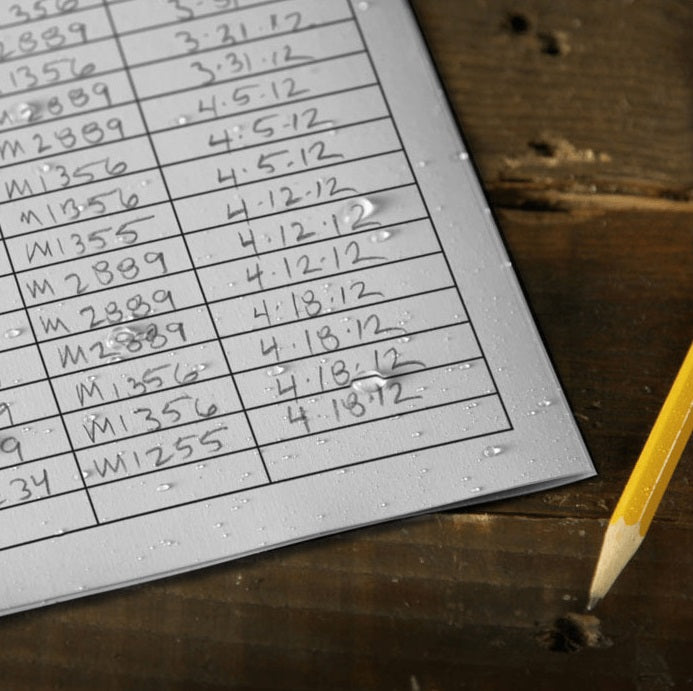 356
2889 3-3
1356 3.31.12
M2889 3.31.12
M2889 4.5.12
M1356 4.5.12
M1356 4.5.12
M1355 4.12.12
M2889 4.12.12
M2889 4.12.12
M2889 4.18.12
9 M1356 4.18.12
9 M1356 4.18.12
234 M1255 4.18.12